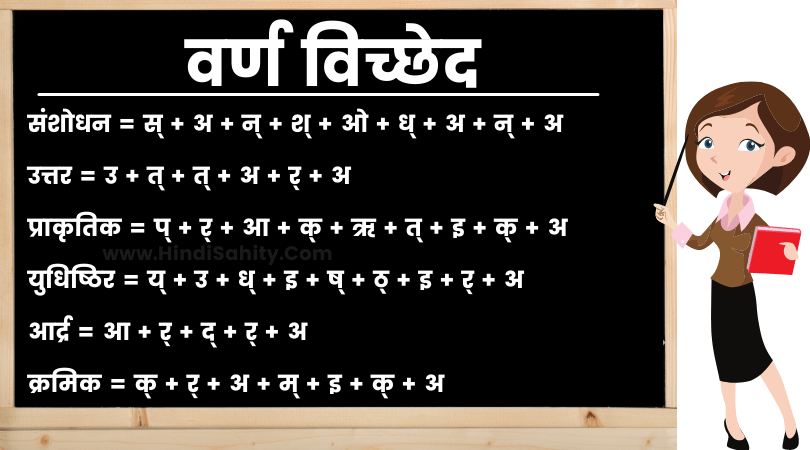 वर्ण विच्छेद
संशोधन = स् + अ + न् + श् + ओ + ध् + अ + न् + अ
उत्तर = उ + त् + त् + अ + र् + अ
प्राकृतिक = प् + र् + आ + क् + ऋ + त् + इ + क् + अ
www.HindiSahity.Com
युधिष्ठिर = य् + उ + ध् + इ + ष् + ठ् + इ + र् + अ
आर्द्र = आ + र् + द् + र् + अ
क्रमिक = क् + र् + अ + म् + इ + क् + अ